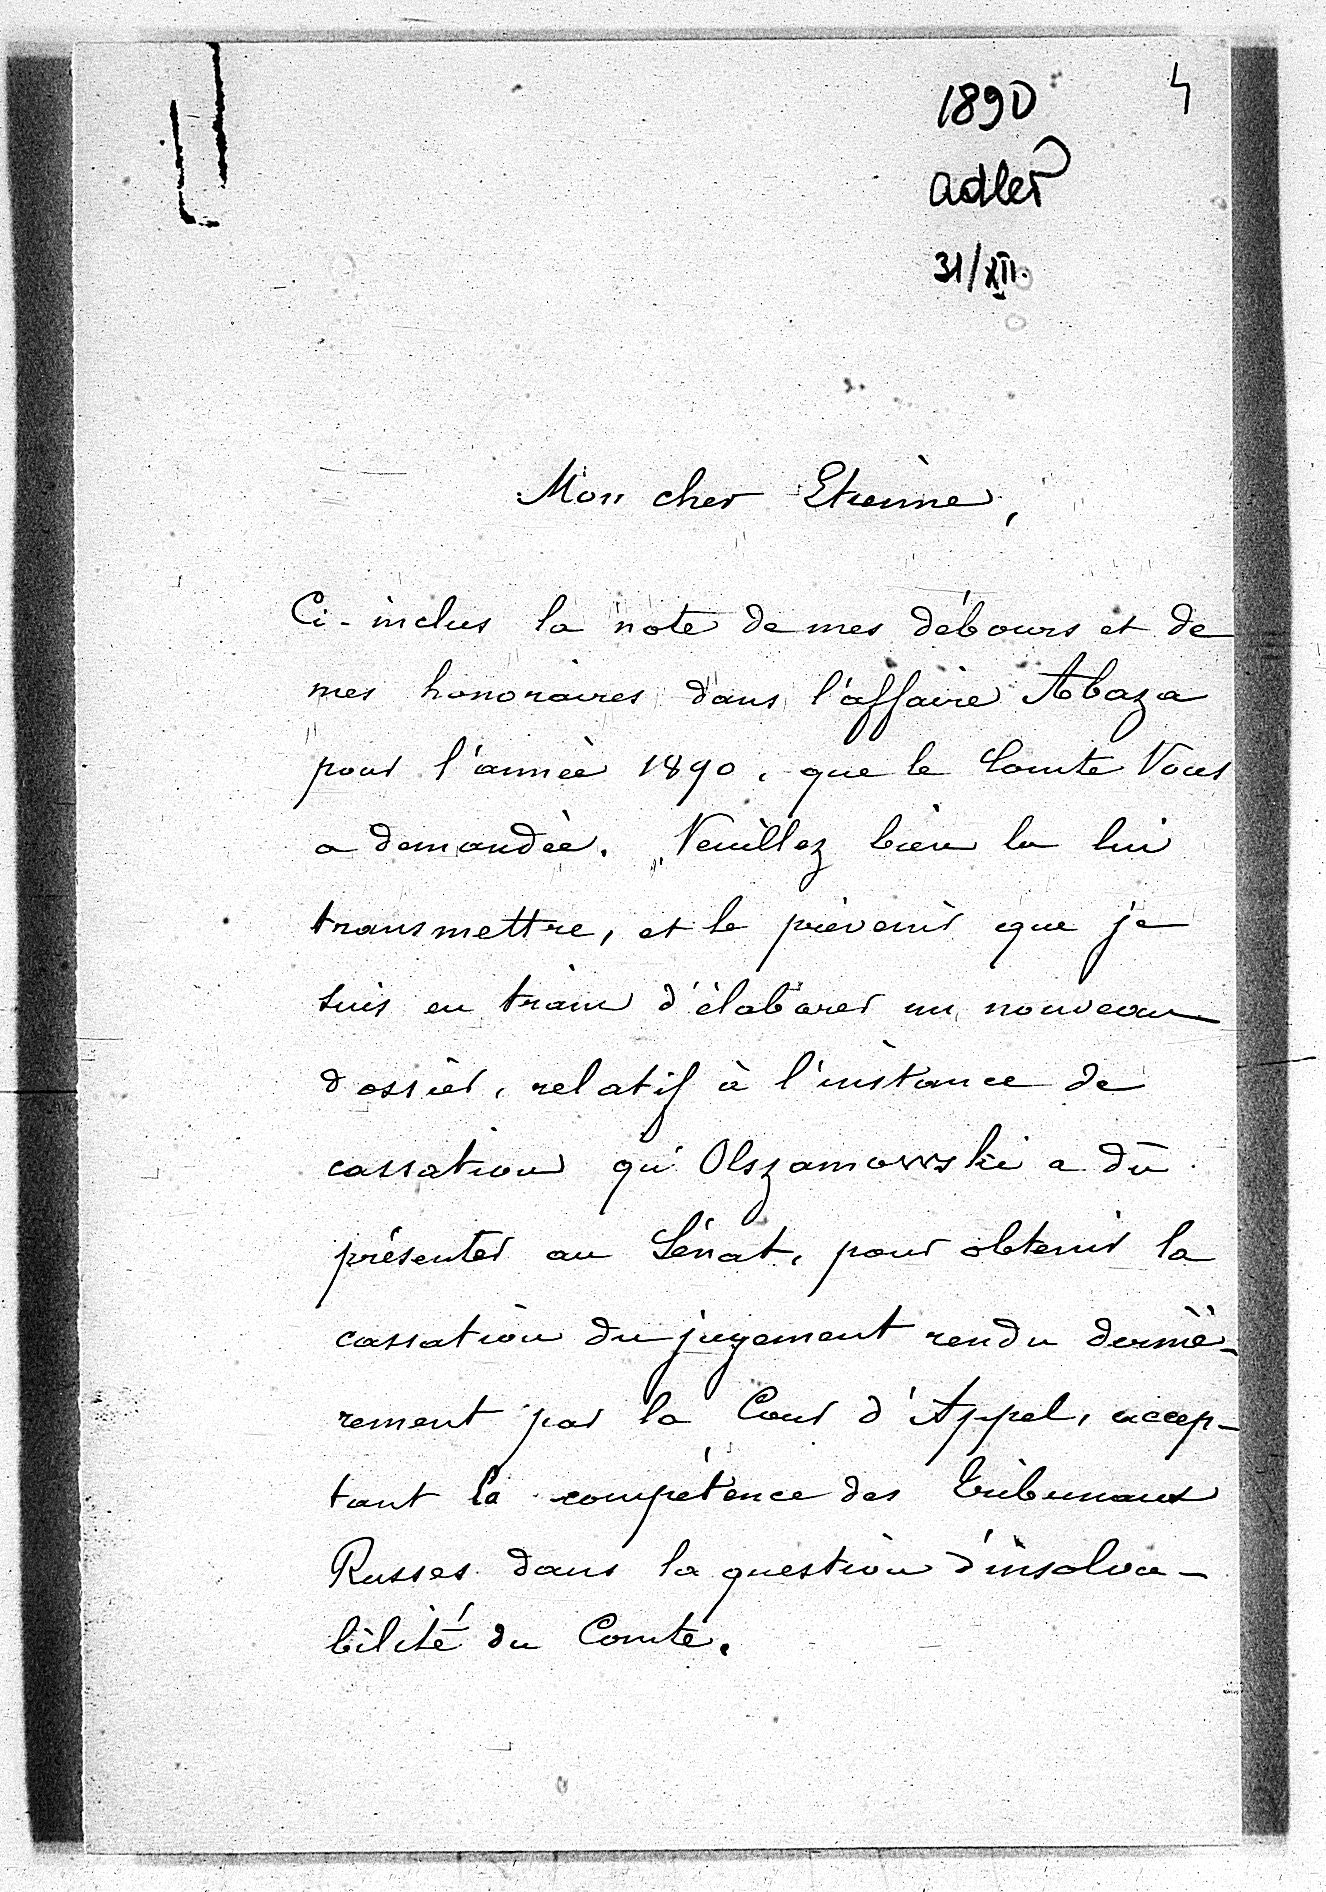 4
1890
Adler
31/XII.
Mon cher Etienne,
Ci-inclus la note de mes débours et de
mes honoraires dans l'affaire Abaza
pour l'année 1890, que le Comte Vous
a demandée. Veuillez bien la lui
transmettre, et le prévenir que je
suis en train d'élaborer un nouveau
dossier, relatif à l'instance de
cassation qu'Olszamowski a dû
présenter au Sénat, pour obtenir la
cassation du jugement rendu derniè-
rement par la Cour d'Appel, accep-
tant la compétence des Tribunaux
Russes dans la question d'insolva-
bilité du Comte.